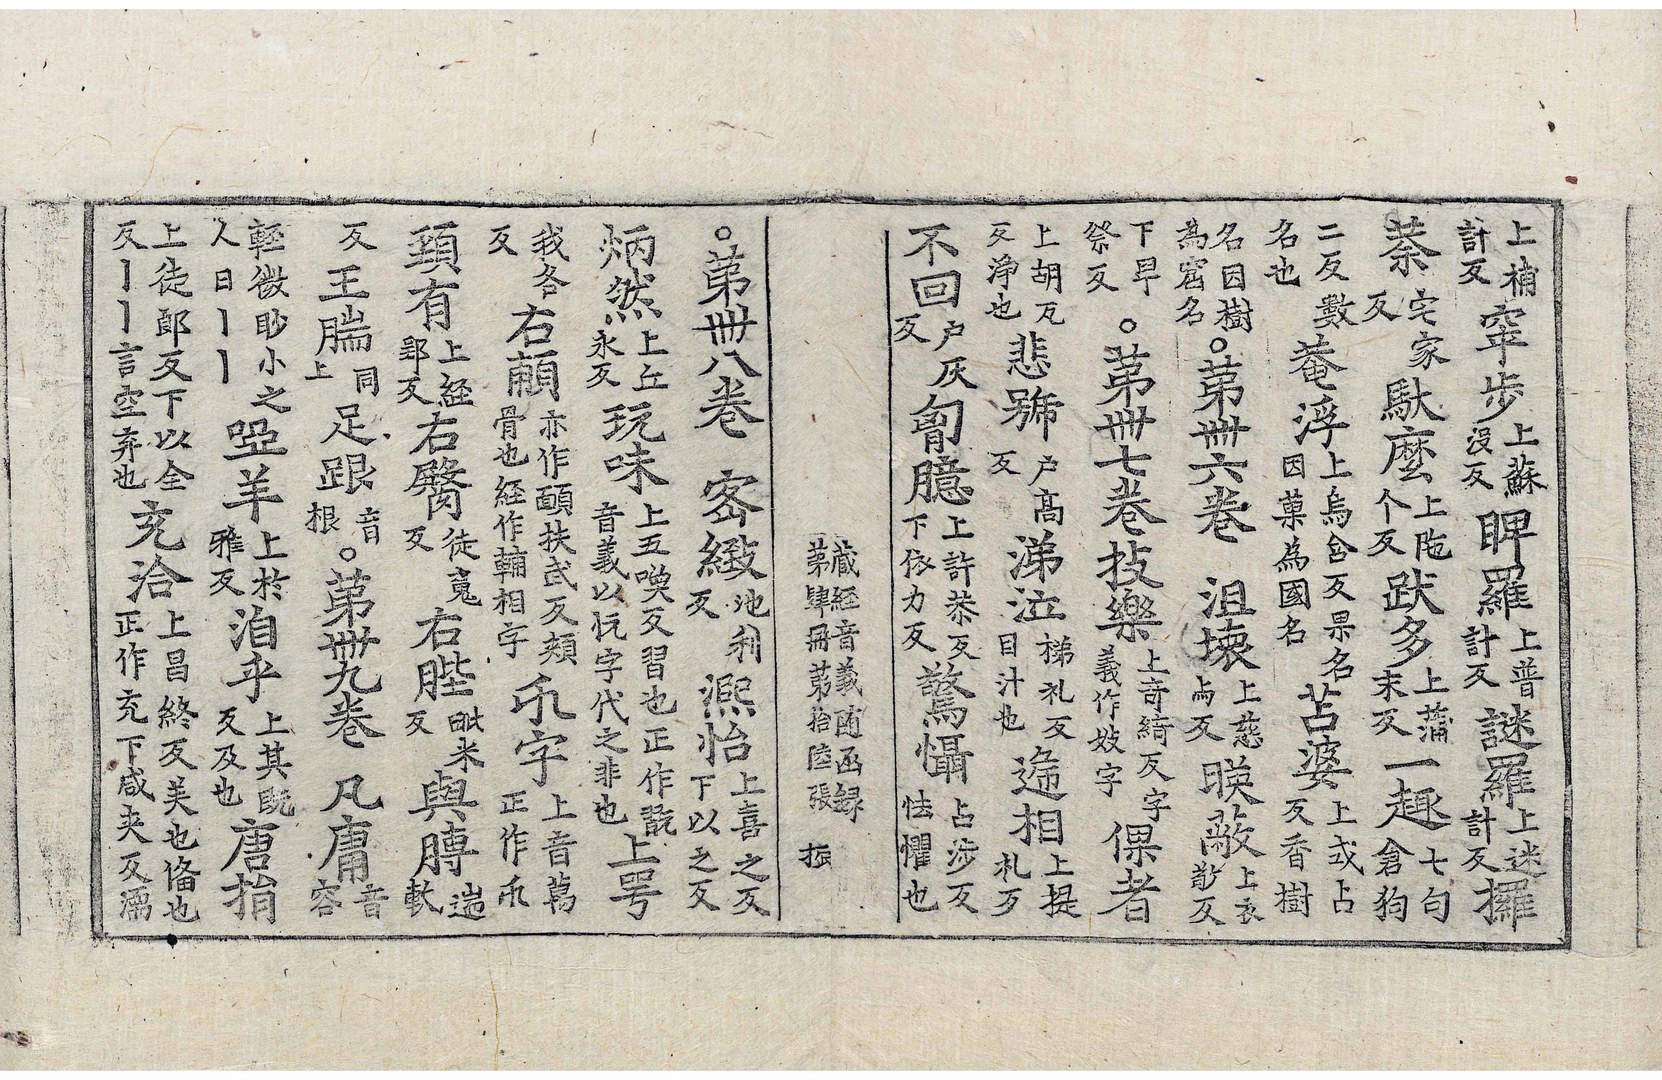 上補計反 窣步 上蘇沒反 睥羅 上普計反 謎羅 上迷計反 攞
荼 宅家反 馱麽 上陁个反 跋多 上蒲末反 一趣 七句倉狗
二反數名也 菴浮 上烏含反果名因菓為國名 苫婆 上或占反香樹
名因樹為窟名 ○第卌六卷 沮壞 上慈与反 暎蔽 上衣敬反
下卑祭反 ○第卌七卷 技樂 上奇綺反字義作妓字 倮者
上胡瓦反淨也 悲號 户高反 涕泣 梯礼反目汁也 递相 上提札反
不回 户灰反 匈臆 上許恭反下依力反 驚懾 占涉反怯懼也
藏經音義随函録 第肆冊第拾陸張 振
○第卌八卷 密緻 池利反 熈怡 上喜之反下以之反
炳然 上丘永反 玩味 上五喚反習也正作翫音義以忨字代之非也 上咢
我各反 右䩉 亦作頥扶武反頰骨也經作輔相字 卐字 上音萬正作卐
頚有 上経郢反 右臋 徒䰟反 右䏶 毗米反 與膞 遄軟
反 王腨 同上 足跟 音根 ○第卌九卷 凡庸 音容
輕微眇小之人曰丨丨 瘂羊 上於雅反 洎乎 上其旣反及也 唐捐
上徒郎反下以全反丨丨言空弃也 充洽 上昌終反美也俻也正作充下咸夾反霑